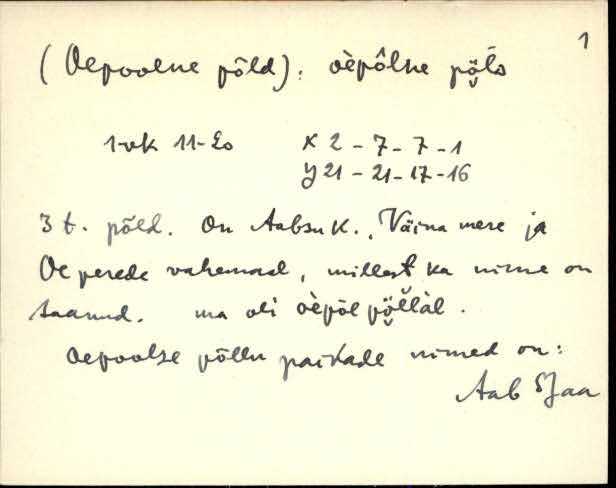 1
(Oepoolne põld). oèpôlne põ̭l̆o
1-vk 11-20 x 2-7-7-1
y 21-21-17-16
3 t. põld. On Aabsu K., Väina mere ja
Oe perede vahemaal, millest ka nime on
saanud. ma oli oèpõl põ̭l̆l̀àl.
Oepoolse põllu paikade nimed on:
Aab